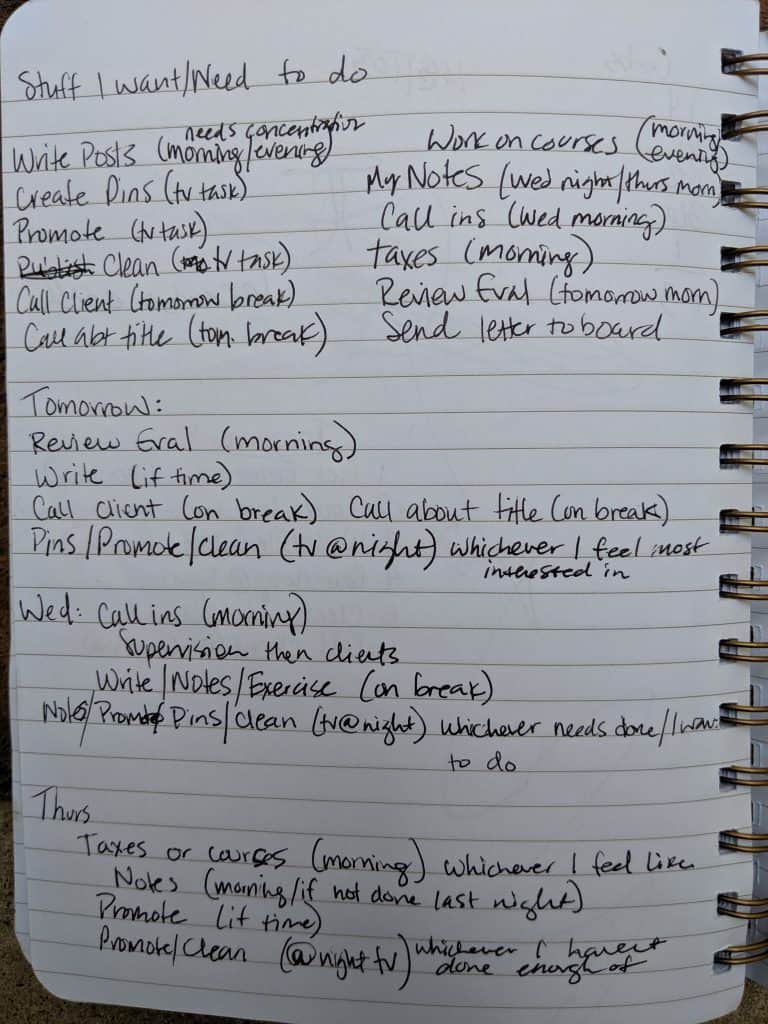 Stuff I want/Need to do
needs concentration
Write Posts (morning/evening)
Create Pins (tv task)
Promote (tv task)
Clean (tv task)
Call Client (tomorrow break)
Call abt title (tom. break)
Work on courses (morning/evening)
My Notes (Wed night/thurs morn)
Call ins (Wed morning)
taxes (morning)
Review Eval (tomorrow morn)
Send letter to board
Tomorrow:
Review Eval (morning)
Write (if time)
Call client (on break) Call about title (on break)
Pins/Promote/Clean (tv @ night) whichever I feel most
interested in
Wed: Call ins (morning)
Supervision then clients
Write/Notes/Exercise (on break)
Notes/Promote/Pins/clean (tv@night) whichever needs done/I wan
to do
Thurs
Taxes or courses (morning) whichever I feel like
Notes (morning/if not done last night)
Promote (if time)
Promote/Clean (@night tv) whichever I haven't
done enough of